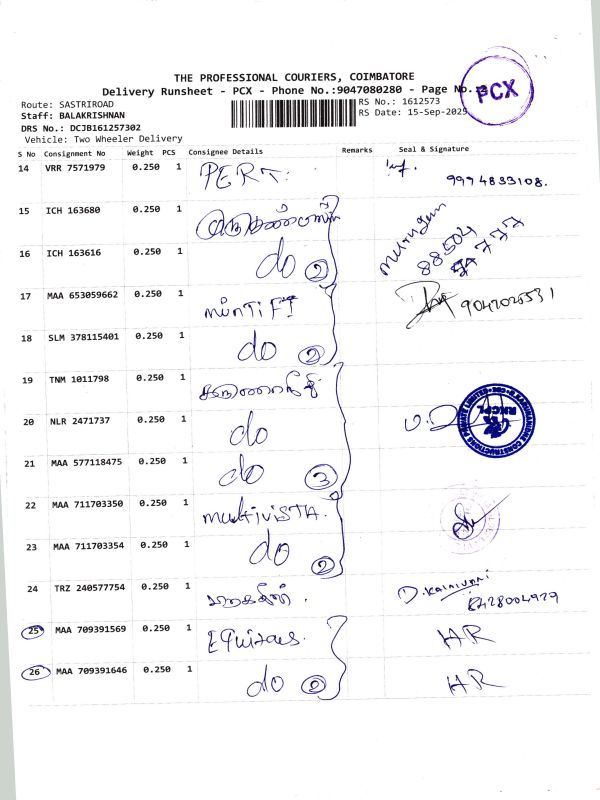 THE PROFESSIONAL COURIERS, COIMBATORE
Delivery Runsheet - PCX - Phone No.:9047080280 - Page No.:3
PCX
Route: SASTRIROAD
RS No.: 1612573
Staff: BALAKRISHNAN
RS Date: 15-Sep-2025
DRS No.: DCJB161257302
Vehicle: Two Wheeler Delivery
S No Consignment No Weight PCS Consignee Details Remarks Seal & Signature
14 VRR 7571979 0.250 1 PERT. 9994833108.
15 ICH 163680 0.250 1
murugan
88504
16 ICH 163616 0.250 1 do 2
17 MAA 653059662 0.250 1
18 SLM 378115401 0.250 1 do 2
19 TNM 1011798 0.250 1
20 NLR 2471737 0.250 1 do
21 MAA 577118475 0.250 1 do 3
22 MAA 711703350 0.250 1 multivista.
23 MAA 711703354 0.250 1 do 2
24 TRZ 240577754 0.250 1 D. Kalaivani
25 MAA 709391569 0.250 1 Equitas. HR
26 MAA 709391646 0.250 1 do 2 HR